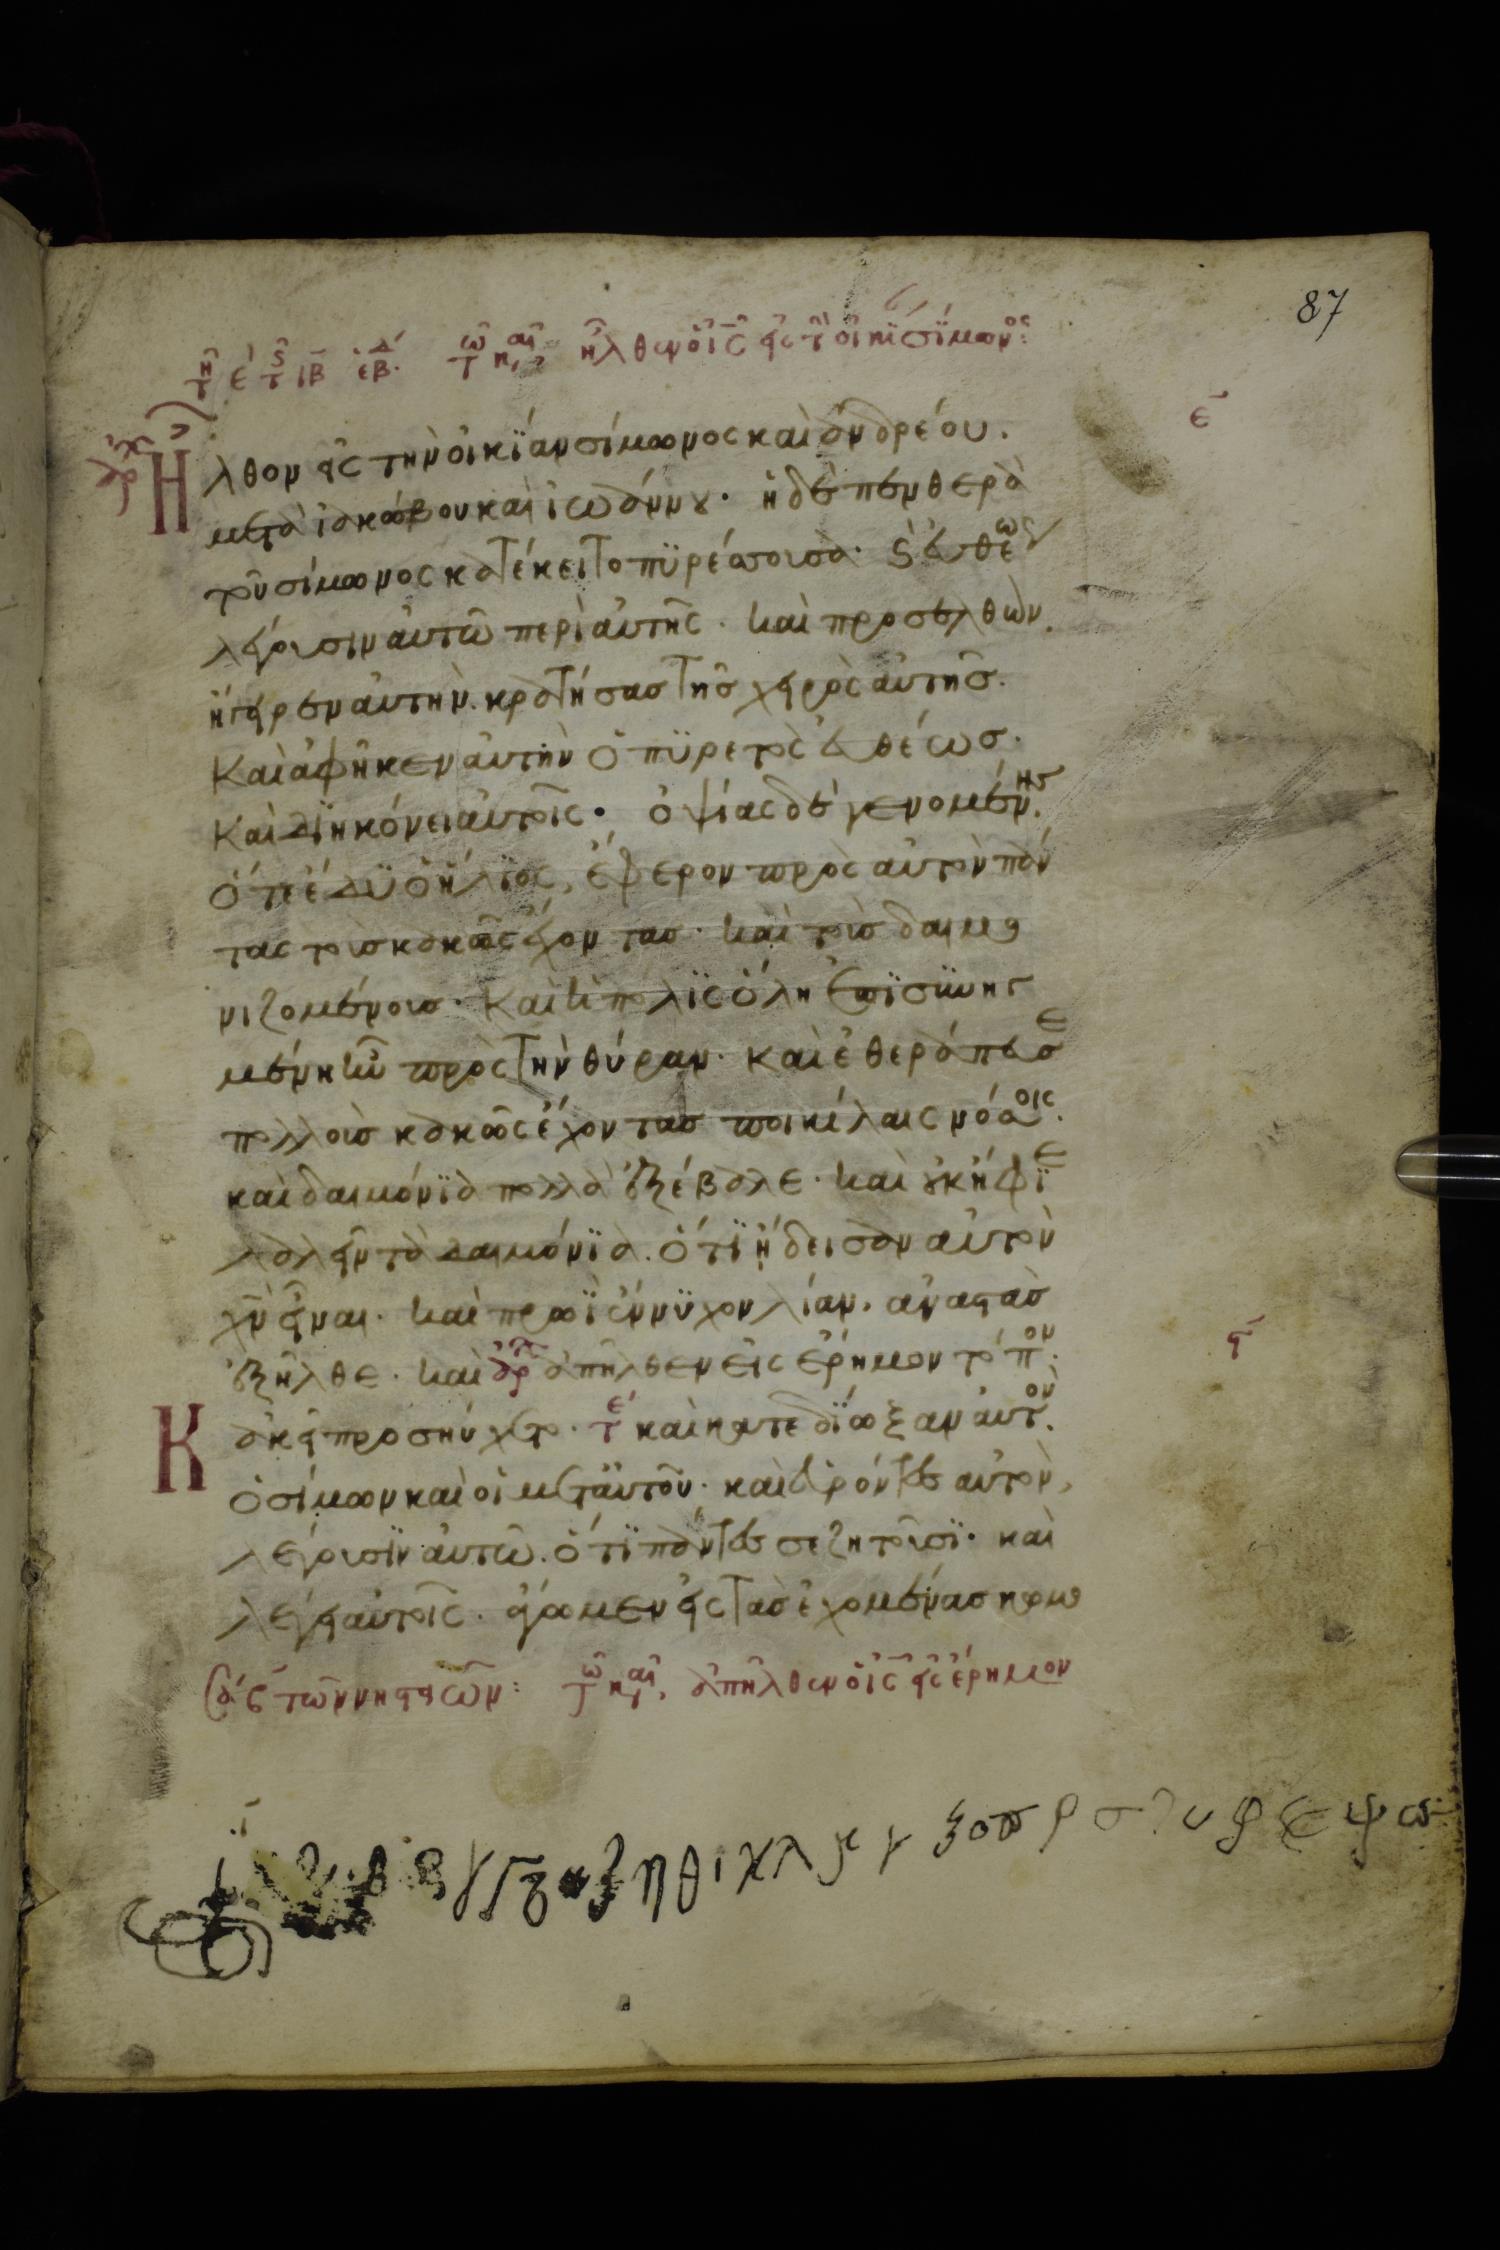 87
τῆ ε τῆς ιβ ἑβδ τῶ κ,, ἦλθεν ὁ ις εἰς τ οἰκί σίμωνος:
ε
ἀρχ Ἦλθον εἰς τὴν οἰκΐαν σίμωνος καὶ ἀνδρέου.
μετὰ ἰακώβου καὶ ἰωάννου. ἡ δὲ πενθερὰ
τοῦ σίμωνος κατέκειτο πϋρέσσουσα. καὶ εὐθέως
λέγουσιν αὐτῶ περὶ αὐτῆς. καὶ προσελθὼν.
ἤγειρεν αὐτὴν. κρατήσας τῆς χειρὸς αὐτῆς.
Καὶ ἀφῆκεν αὐτὴν ὁ πϋρετὸς εὐθέως.
Καὶ διηκόνει αὐτοῖς. ὀψίας δὲ γενομένης.
ὅτε ἔδϋ ὁ ἥλϊος, ἔφερον πρὸς αὐτὸν πάν
τας τοὺς κακῶς ἔχοντας. καὶ τοὺς δαιμο
νιζομένους. Καὶ ἡ πόλϊς ὅλη ἐπϊσυνηγ
μένη ἦν πρὸς τὴν θύραν. καὶ ἐθεράπευσε
πολλοὺς κακῶς ἔχοντας ποικίλαις νόσοις.
καὶ δαιμόνϊα πολλὰ ἐξέβαλε. καὶ οὐκ ἤφϊε
λαλεῖν τὰ δαιμόνϊα. ὅτϊ ἤδεισαν αὐτὸν
χν εἶναι. καὶ πρωῒ ἔννϋχον λίαν. ἀναστὰς
ἐξῆλθε. καὶ ἀρχ ἀπῆλθεν εἰς ἔρημον τόπον.
ς
κἀκεῖ προσηύχετο. τε καὶ κατεδίωξαν αὐτὸν.
ὁ σίμων καὶ οἱ μετ αὐτοῦ. καὶ εὑρόντες αὐτὸν,
λέγουσϊν αὐτῶ. ὅτϊ πάντες σε ζητοῦσϊ. καὶ
λέγει αὐτοῖς. ἄγωμεν εἰς τὰς ἐχομένας κωμο
Σά ς τῶν νηστειῶν: τῶ κ,, ἀπῆλθεν ὁ ις εἰς ἔρημον
β β γ δ ζ η θ ι κ λ μ ν ξ ο π ρ σ τ υ φ χ ψ ω